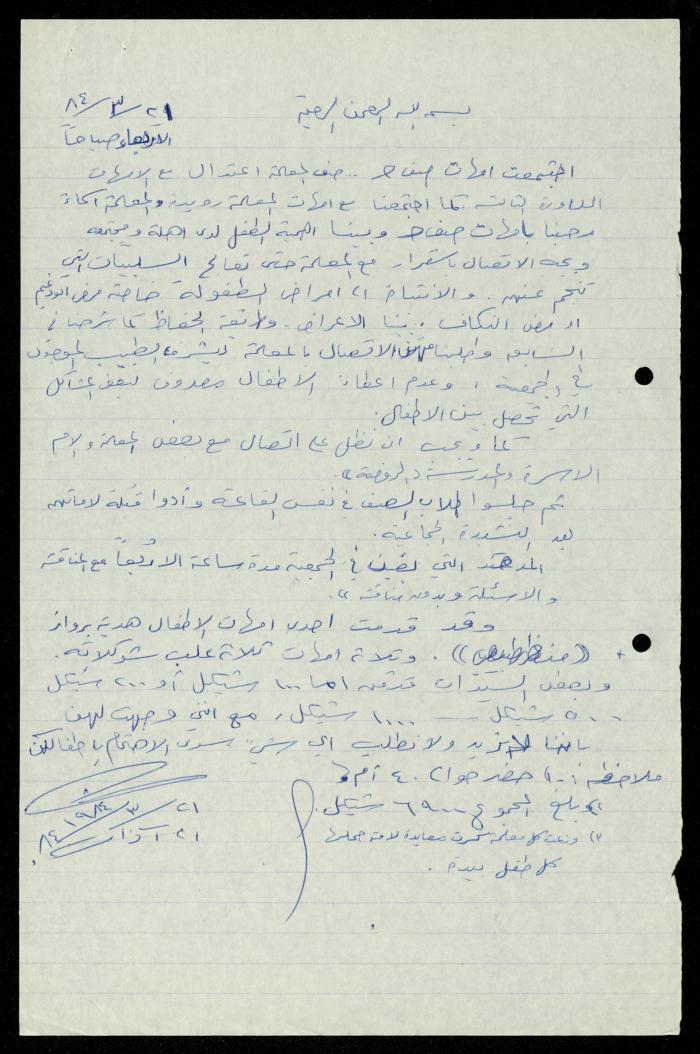 بسم الله الرحمن الرحيم
٢١/٣/٨٤
الاربعاء صباحاً
اجتمعت امهات صف حـ .. صف المعلمة اعتدال مع الامهات
للدورة الثالثة كما اجتمعنا مع امهات المعلمة رويدة والمعلمة
رحبنا بامهات صف حـ وبينا اهمية الطفل لدى اهله ومجتمعه
ويجب الاتصال باستمرار مع المعلمة حتى تعالج السلبيات التي
تنجم عنهم. والانتباه الى امراض الطفولة خاصة مرض ابو دغيم
او مرض النكاف وبينا الاعراض. وطريقة الحفاظ كما شرحنا في
السابق وطلبنا منهن الاتصال بالمعلمة ليشرف الطبيب الموجود
في الجمعية، وعدم اعطاء الاطفال مصروف لبعض المشاكل
التي تحصل بين الاطفال.
كما ويجب ان نظل على اتصال مع بعض المعلمة والام
الاسرة والمدرسة «الروضة».
ثم جلسوا طلاب الصف في نفس القاعة وأدوا قبلة لامهاتهم
بعد النشيدة الجماعية.
المدة التي في الجمعية مدة ساعة الا ربعاً مع المناقشة
والاسئلة وبدون مناقشة».
وقد قدمت احدى امهات الاطفال هدية برواز
+ ((منظر طبيعي)). وثلاثة امهات ثلاثة علب شوكلاته.
وبعض السيدات قدمن اما ١٠٠ شيكل أو ٢٠٠ شيكل
٥٠٠ شيكل — ١٠٠٠ شيكل، مع انني وجهت لهن
باننا لا نريد ولا نطلب اي شيء سوى الاهتمام باطفالكن
ملاحظة: ١) حضر حوالي ٤٠ أم
وبلغ المجموع ٦٩٠٠ شيكل.
٢) وزعت كل معلمة كرت معايدة لامه حملها
كل طفل بيده.
٢١/٣/١٩٨٤
٢١ آذار ٨٤